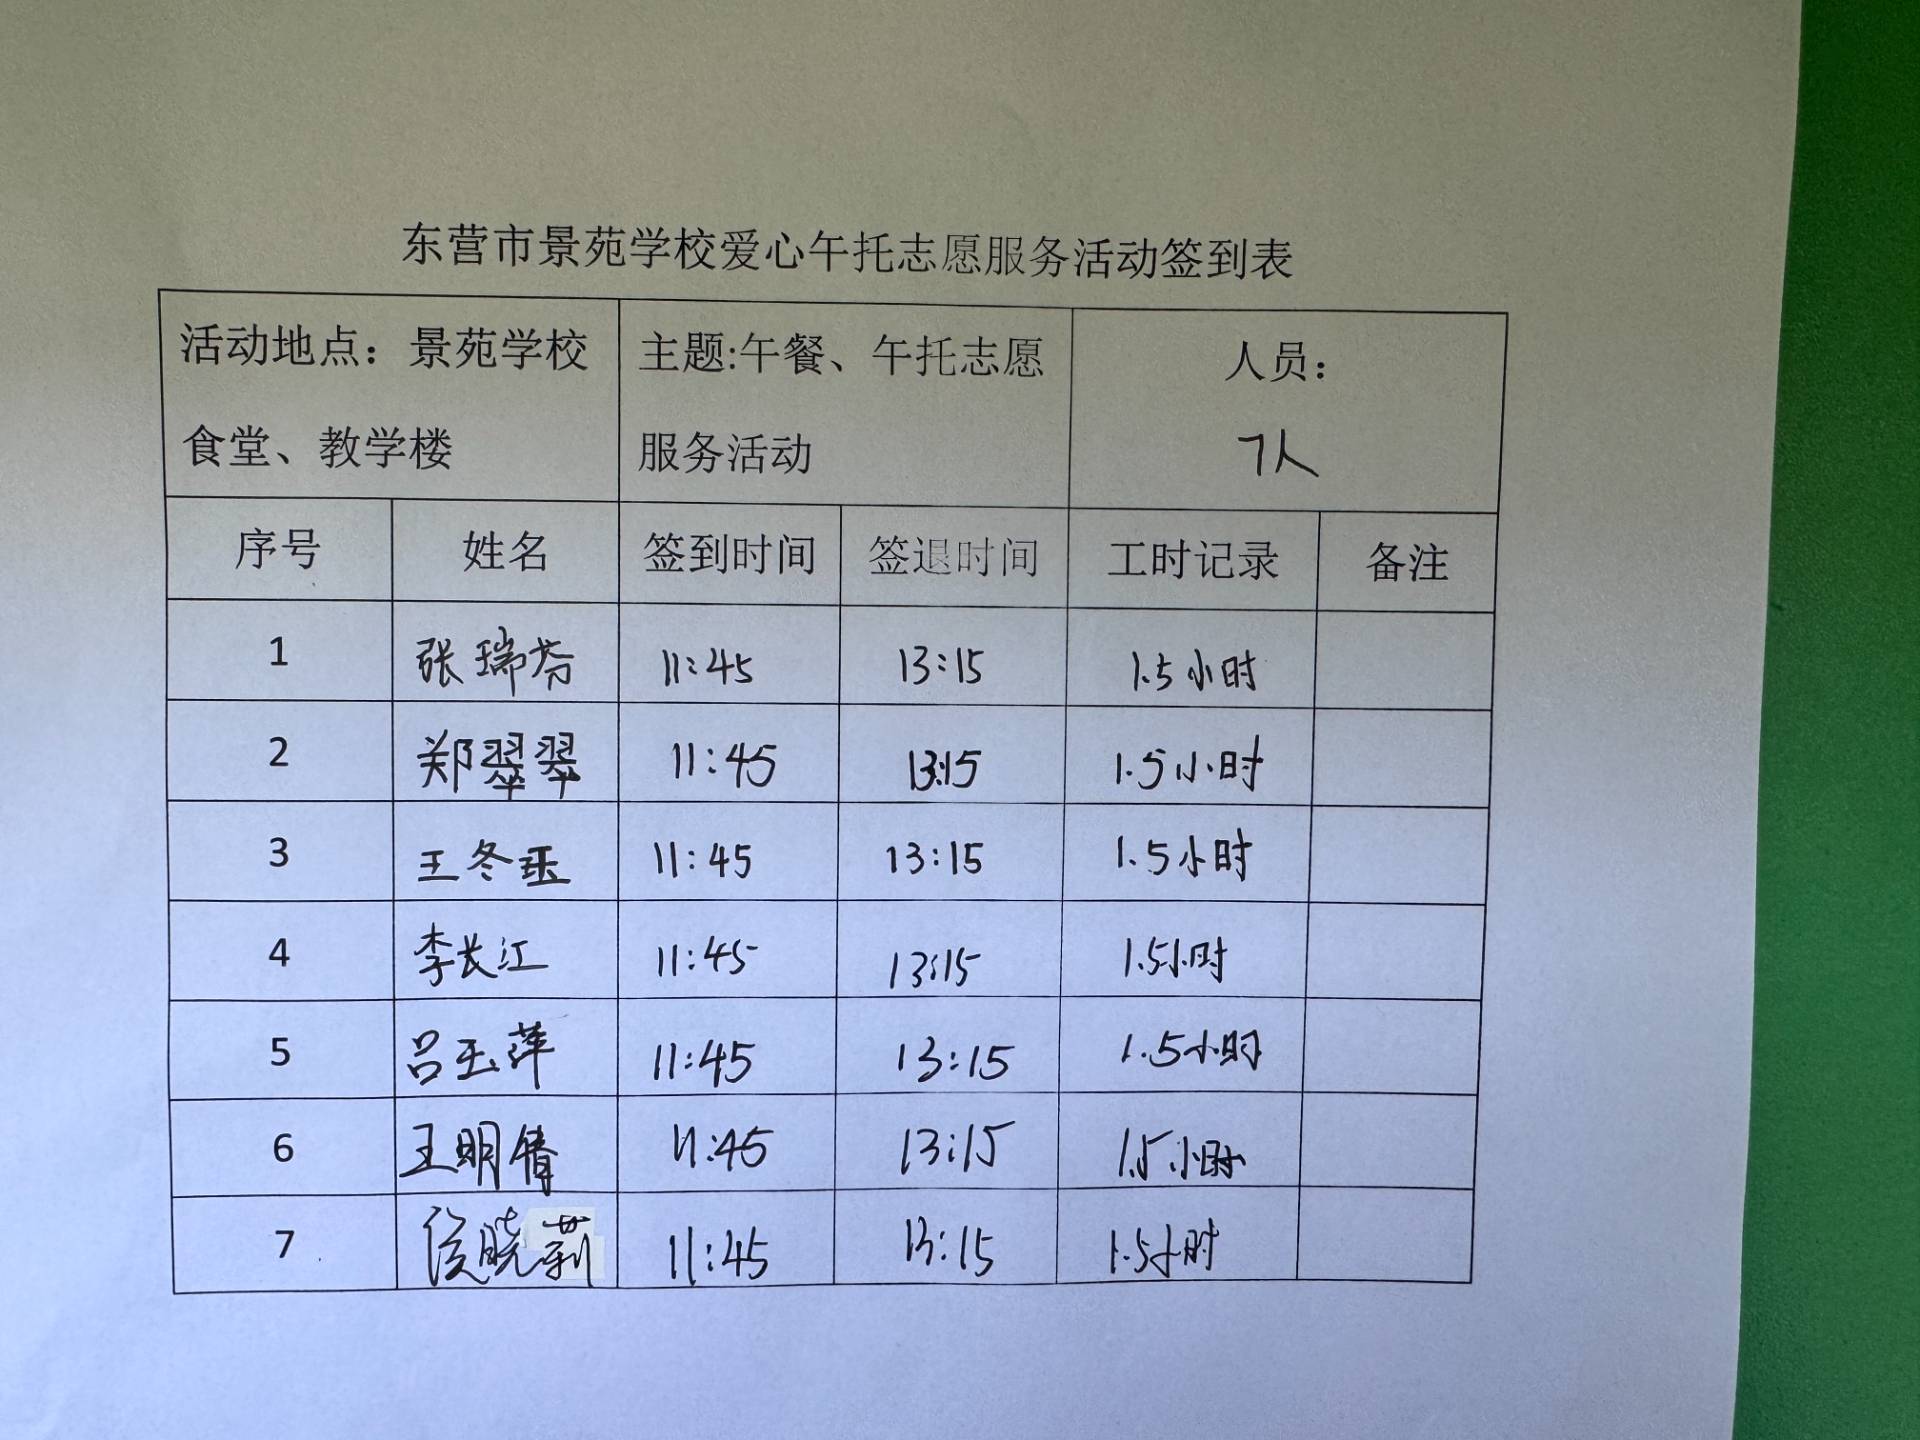 东营市景苑学校爱心午托志愿服务活动签到表
活动地点：景苑学校 主题:午餐、午托志愿 人员：
食堂、教学楼 服务活动 7人
序号 姓名 签到时间 签退时间 工时记录 备注
1 张瑞芬 11:45 13:15 1.5小时
2 郑翠翠 11:45 13:15 1.5小时
3 王冬玉 11:45 13:15 1.5小时
4 李长江 11:45 13:15 1.5小时
5 吕玉萍 11:45 13:15 1.5小时
6 王明倩 11:45 13:15 1.5小时
7 侯晓莉 11:45 13:15 1.5小时